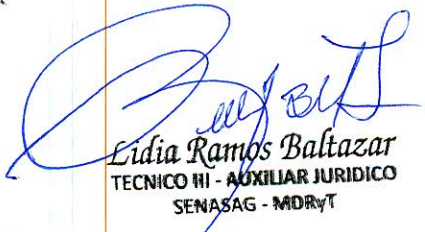 Lidia Ramos Baltazar
TECNICO III - AUXILIAR JURIDICO
SENASAG - MDRyT